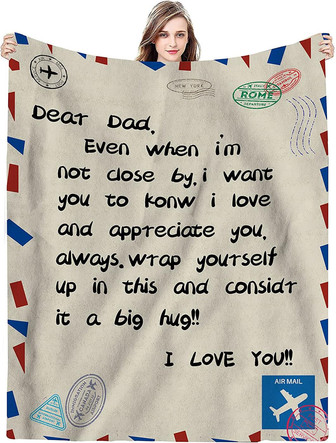 NEW YORK
ROME
DEPARTURE
Dear Dad,
Even when i'm
not close by, i want
you to konw i love
and appreciate you,
always. wrap yourself
up in this and considr
it a big hug!!
I LOVE YOU!!
AIR MAIL
CANADA